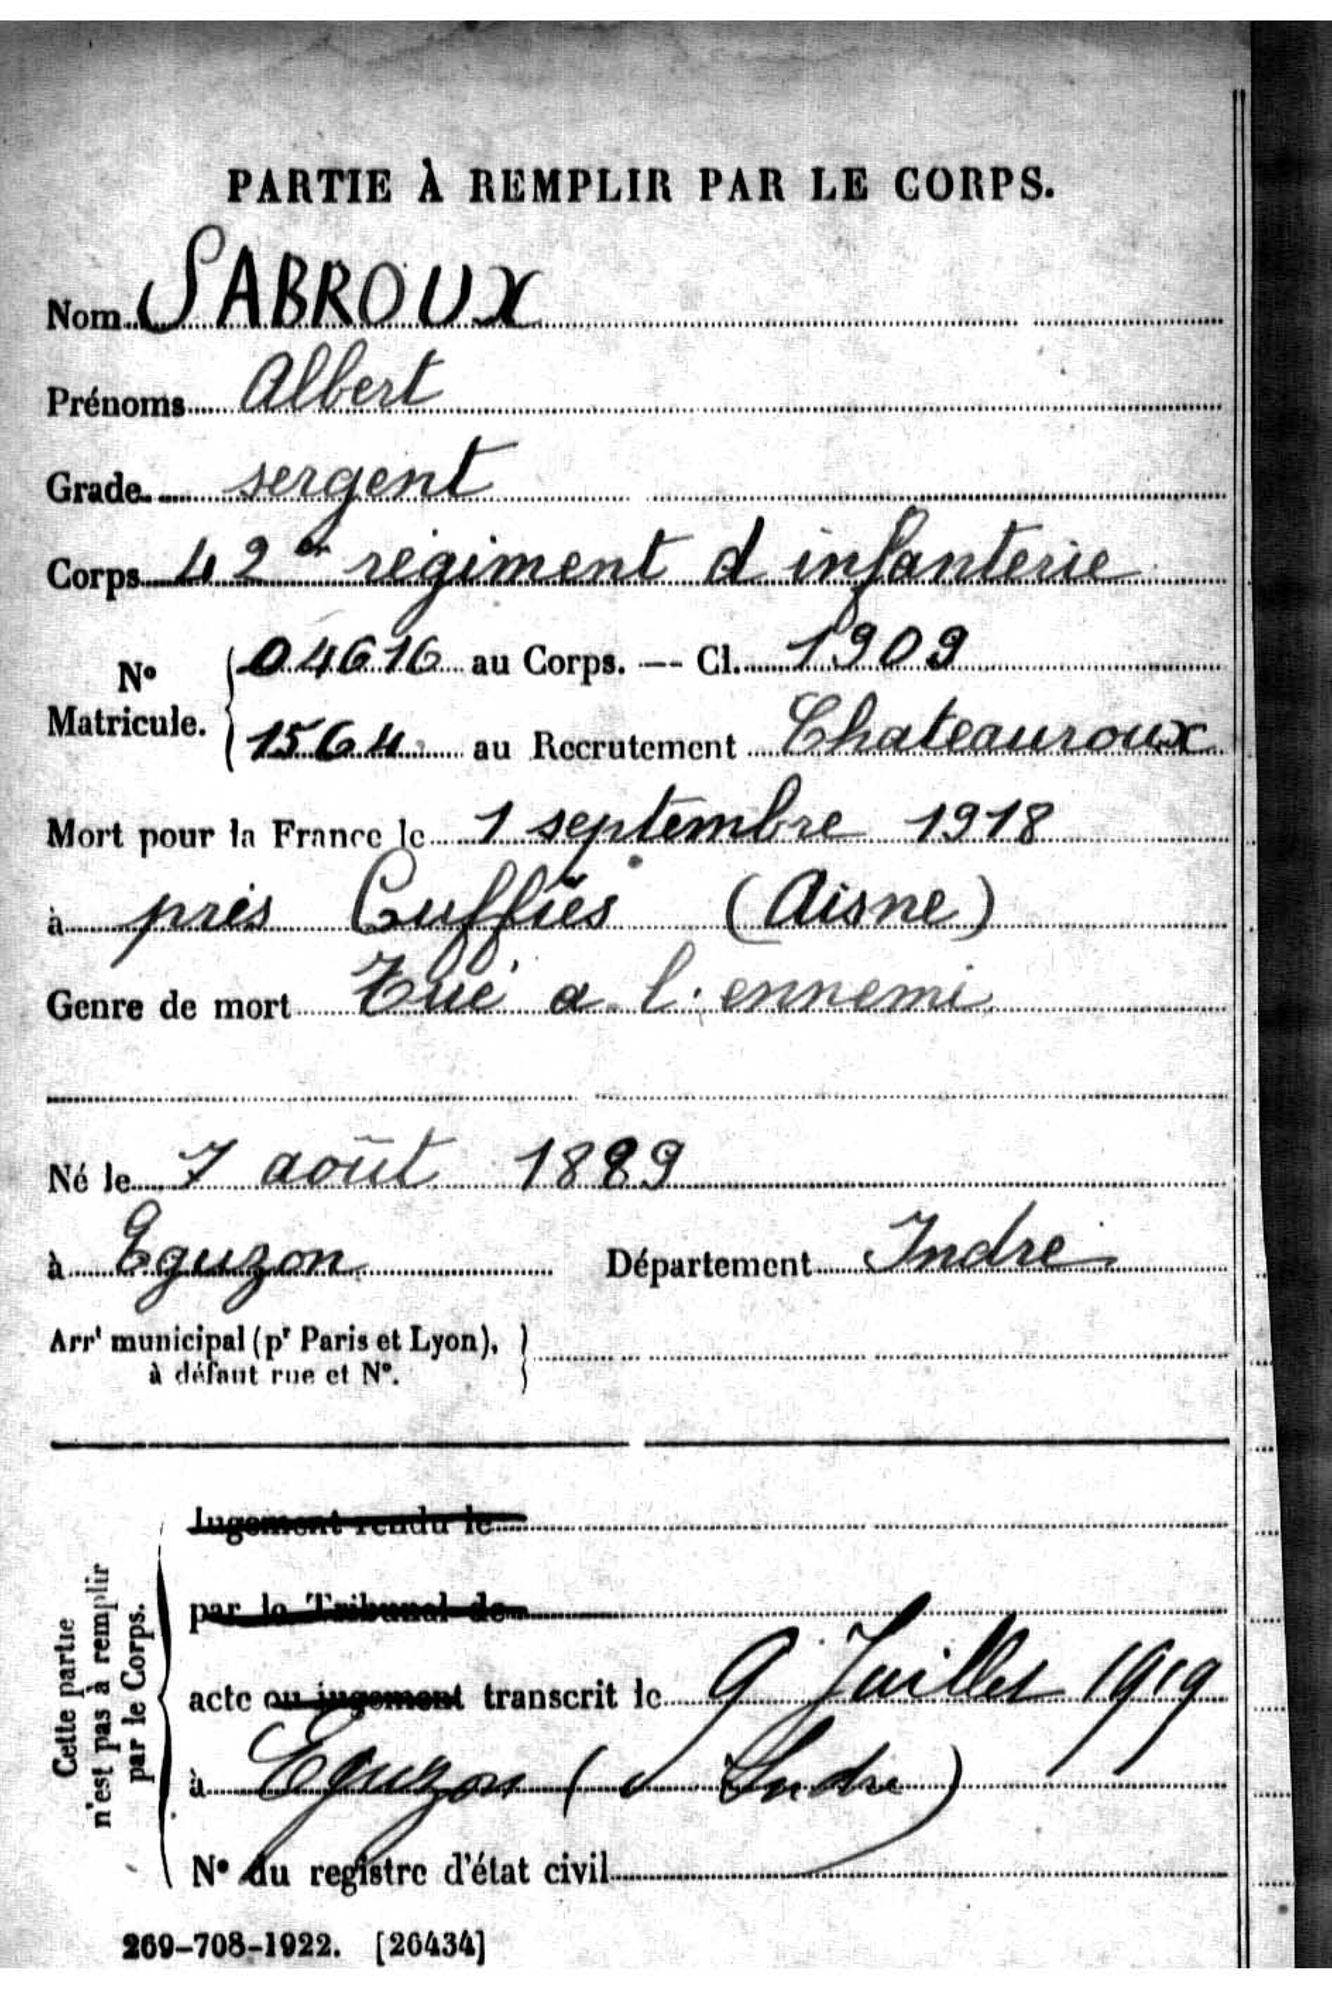 PARTIE À REMPLIR PAR LE CORPS.
Nom SABROUX
Prénoms Albert
Grade sergent
Corps 42e régiment d infanterie
No Matricule. 04616 au Corps. — Cl. 1909
1564 au Recrutement Chateauroux
Mort pour la France le 1 septembre 1918
à près Cuffies (Aisne)
Genre de mort Tué a l'ennemi
Né le 7 août 1889
à Eguzon Département Indre
Arrt municipal (pr Paris et Lyon),
à défaut rue et No.
Cette partie
n'est pas à remplir
par le Corps.
Jugement rendu le
par le Tribunal de
acte ou jugement transcrit le 9 Juillet 1919
à Eguzon (Indre)
No du registre d'état civil
269-708-1922. [26434]